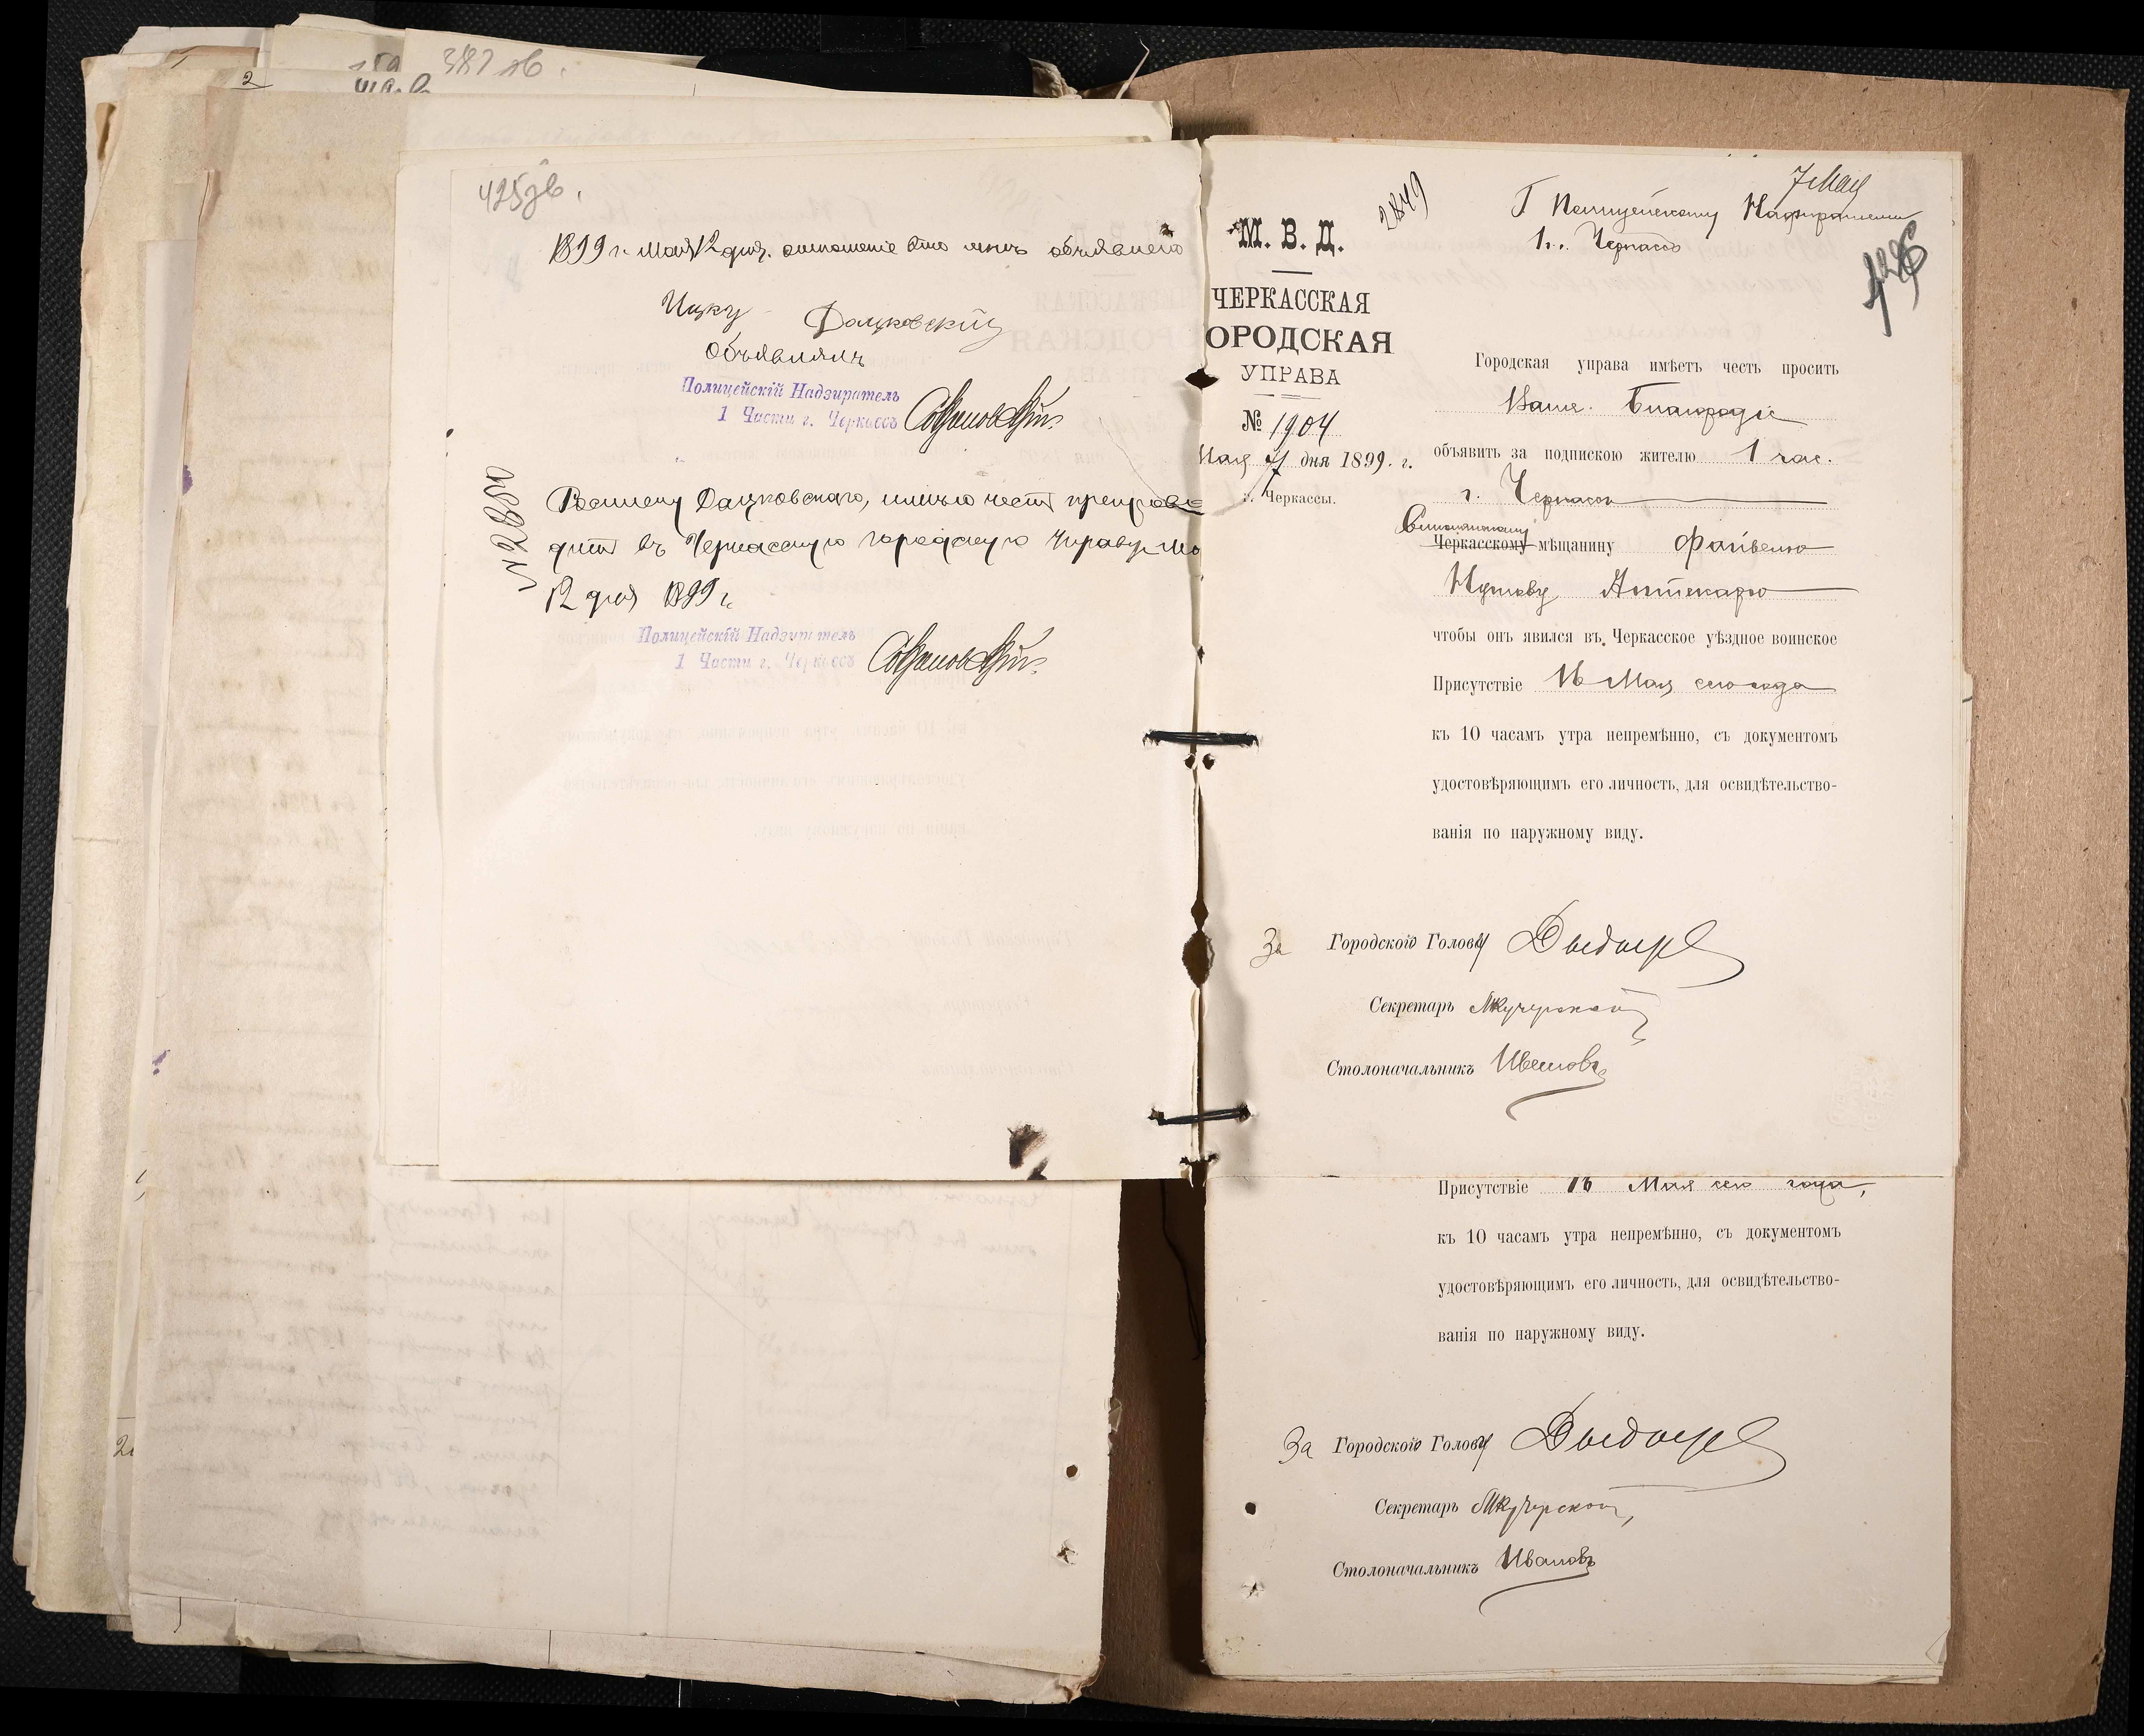 387 зв.
2
425 зв.
1899 г. Мая 12 дня. отношеніе это мнѣ объявлено
Ицку Дацковскій
Объявилъ
Полицейскій Надзиратель
1 Части г. Черкассъ
Росписку Дацковскаго, имѣю честь препрово
дить въ Черкасскую городскую Управу. Ма
12 дня 1899 г.
№ 2830
Полицейскій Надзиратель
1 Части г. Черкассъ
7 Мая
2849
Г Полицейскому Надзирателю
1 ч. Черкассъ
426
М. В. Д.
ЧЕРКАССКАЯ
ОРОДСКАЯ
УПРАВА
№ 1904
Мая 7 дня 1899 г.
г. Черкассы.
Городская управа имѣетъ честь просить
Ваше Благородіе
объявить за подпискою жителю 1 час.
г. Черкассъ
Черкасскому мѣщанину Файвелю
Аптекарю
чтобы онъ явился въ Черкасское уѣздное воинское
Присутствіе 16 Мая сего года
къ 10 часамъ утра непремѣнно, съ документомъ
удостовѣряющимъ его личность, для освидѣтельство-
ванія по наружному виду.
За Городского Голову
Секретарь
Столоначальникъ Ивановъ
Присутствіе 16 Мая сего года,
къ 10 часамъ утра непремѣнно, съ документомъ
удостовѣряющимъ его личность, для освидѣтельство-
ванія по наружному виду.
За Городского Голову
Секретарь
Столоначальникъ Ивановъ